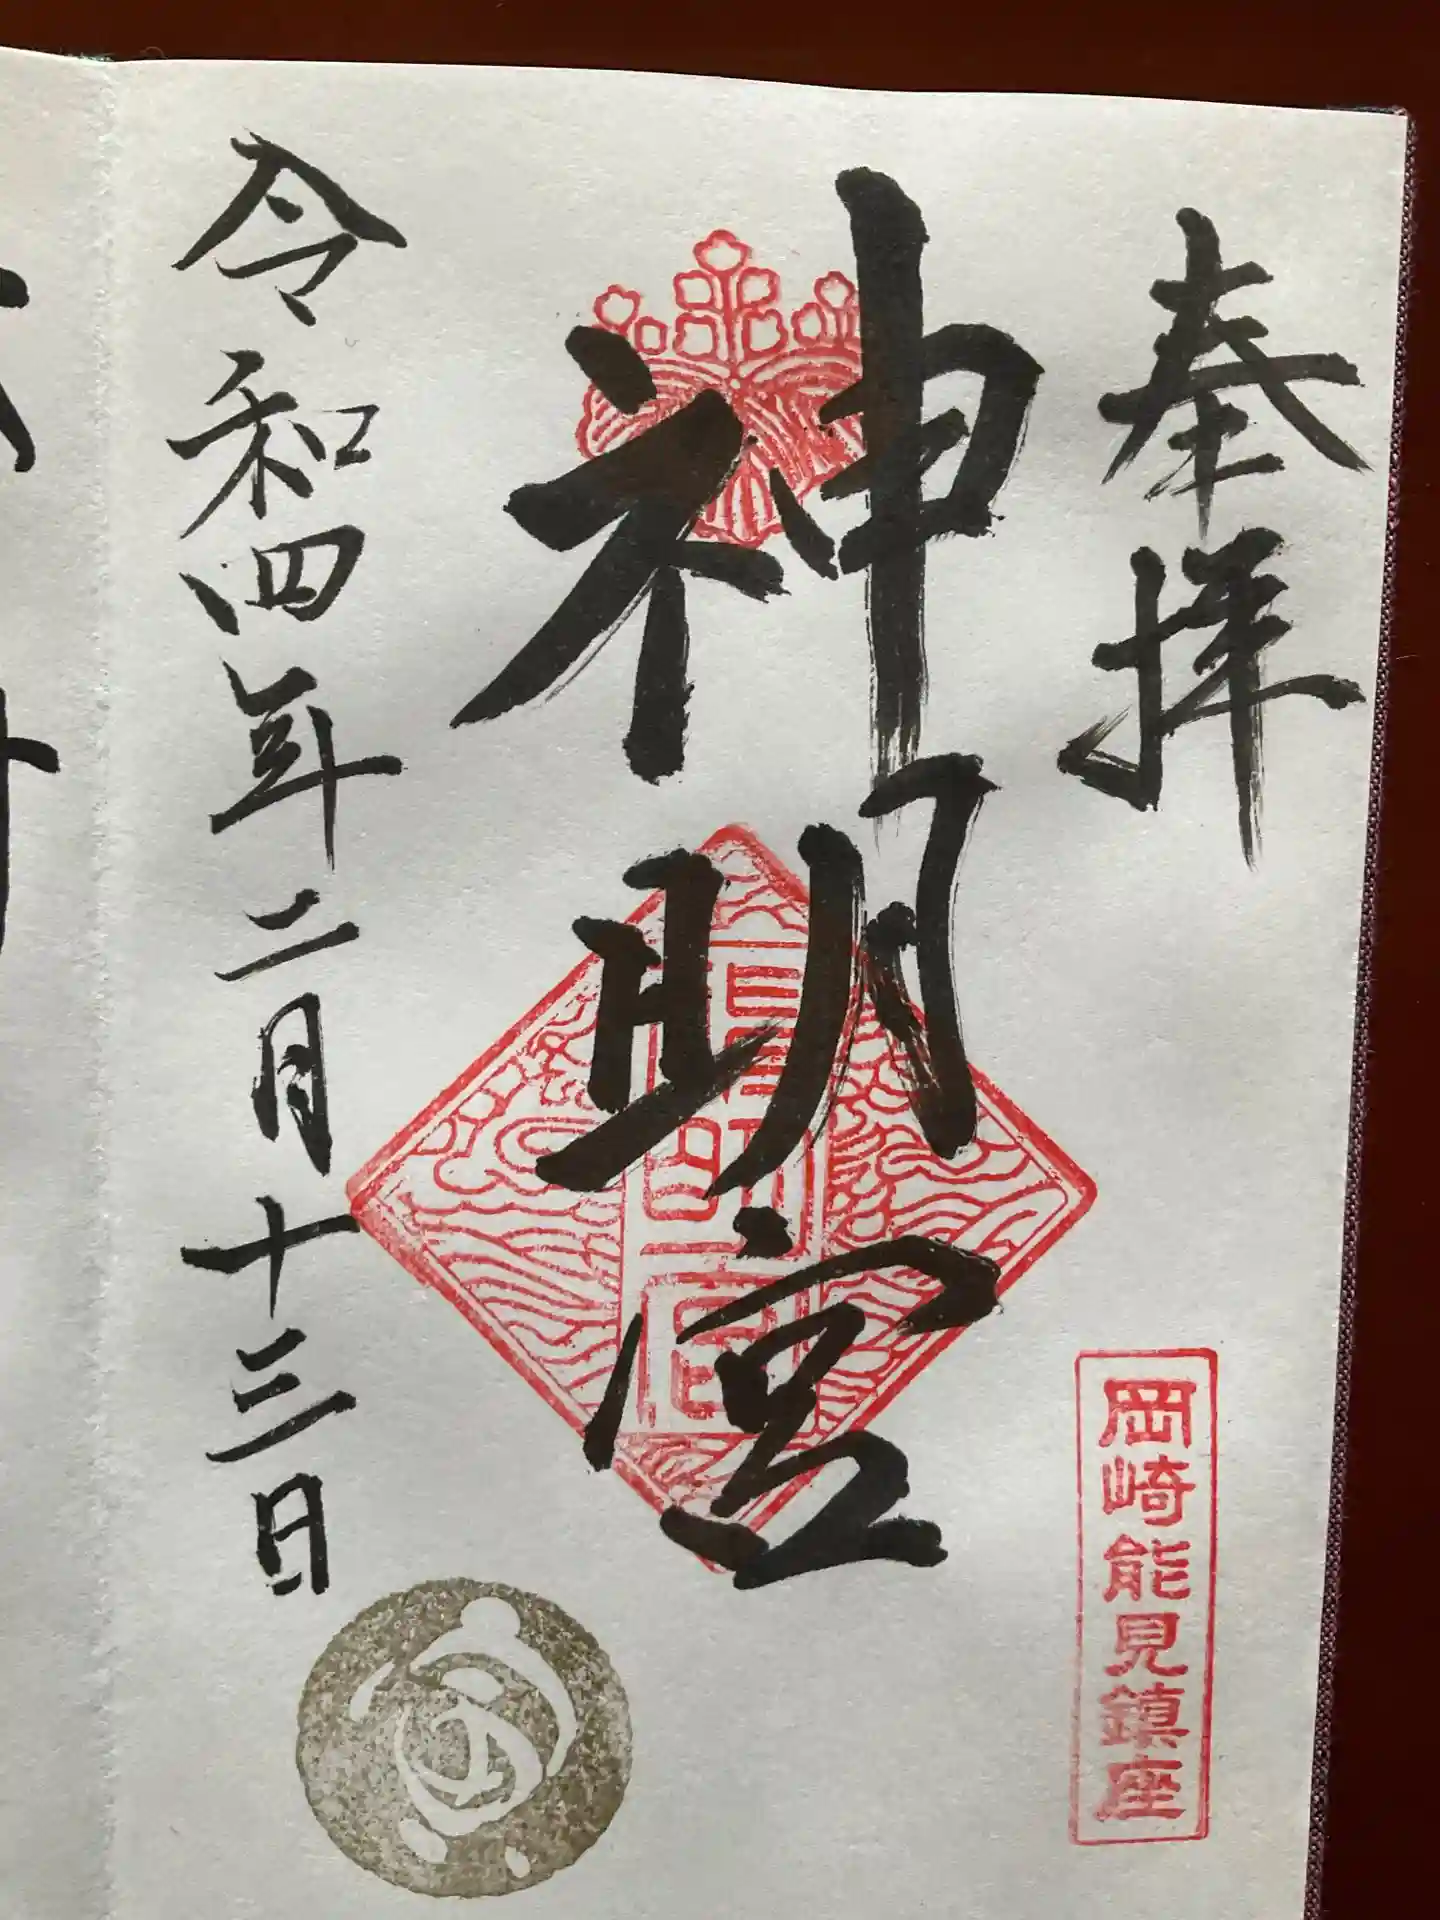 奉拝
岡崎能見鎮座
神明宮
令和四年二月十三日